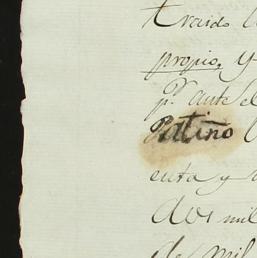 traido
propio, y
p.r ante el
Patiño
enta y
dos mil
de mil